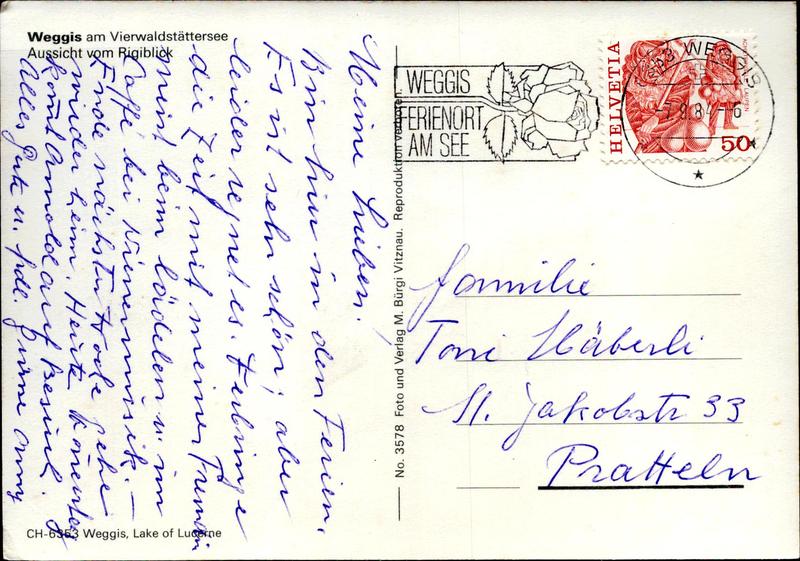 Weggis am Vierwaldstättersee
Aussicht vom Rigiblick
Meine Lieben!
Bin hier in den Ferien.
Es ist sehr schön; aber
leider regnet es. Verbringe
die Zeit mit meiner
meist beim lädelen u. im
Caffe bei Wienermusik. –
Ende nächster Woche gehe
wieder heim. Heute
komt Arnold auf Besuch.
Alles Gute u. frdl. Grüsse Anny
CH-6353 Weggis, Lake of Lucerne
No. 3578 Foto und Verlag M. Bürgi Vitznau. Reproduktion verboten.
WEGGIS
FERIENORT
AM SEE
HELVETIA
50
6353 WEGGIS
-7.9.84--6
Familie
Toni Häberli
St. Jakobstr 33
Pratteln